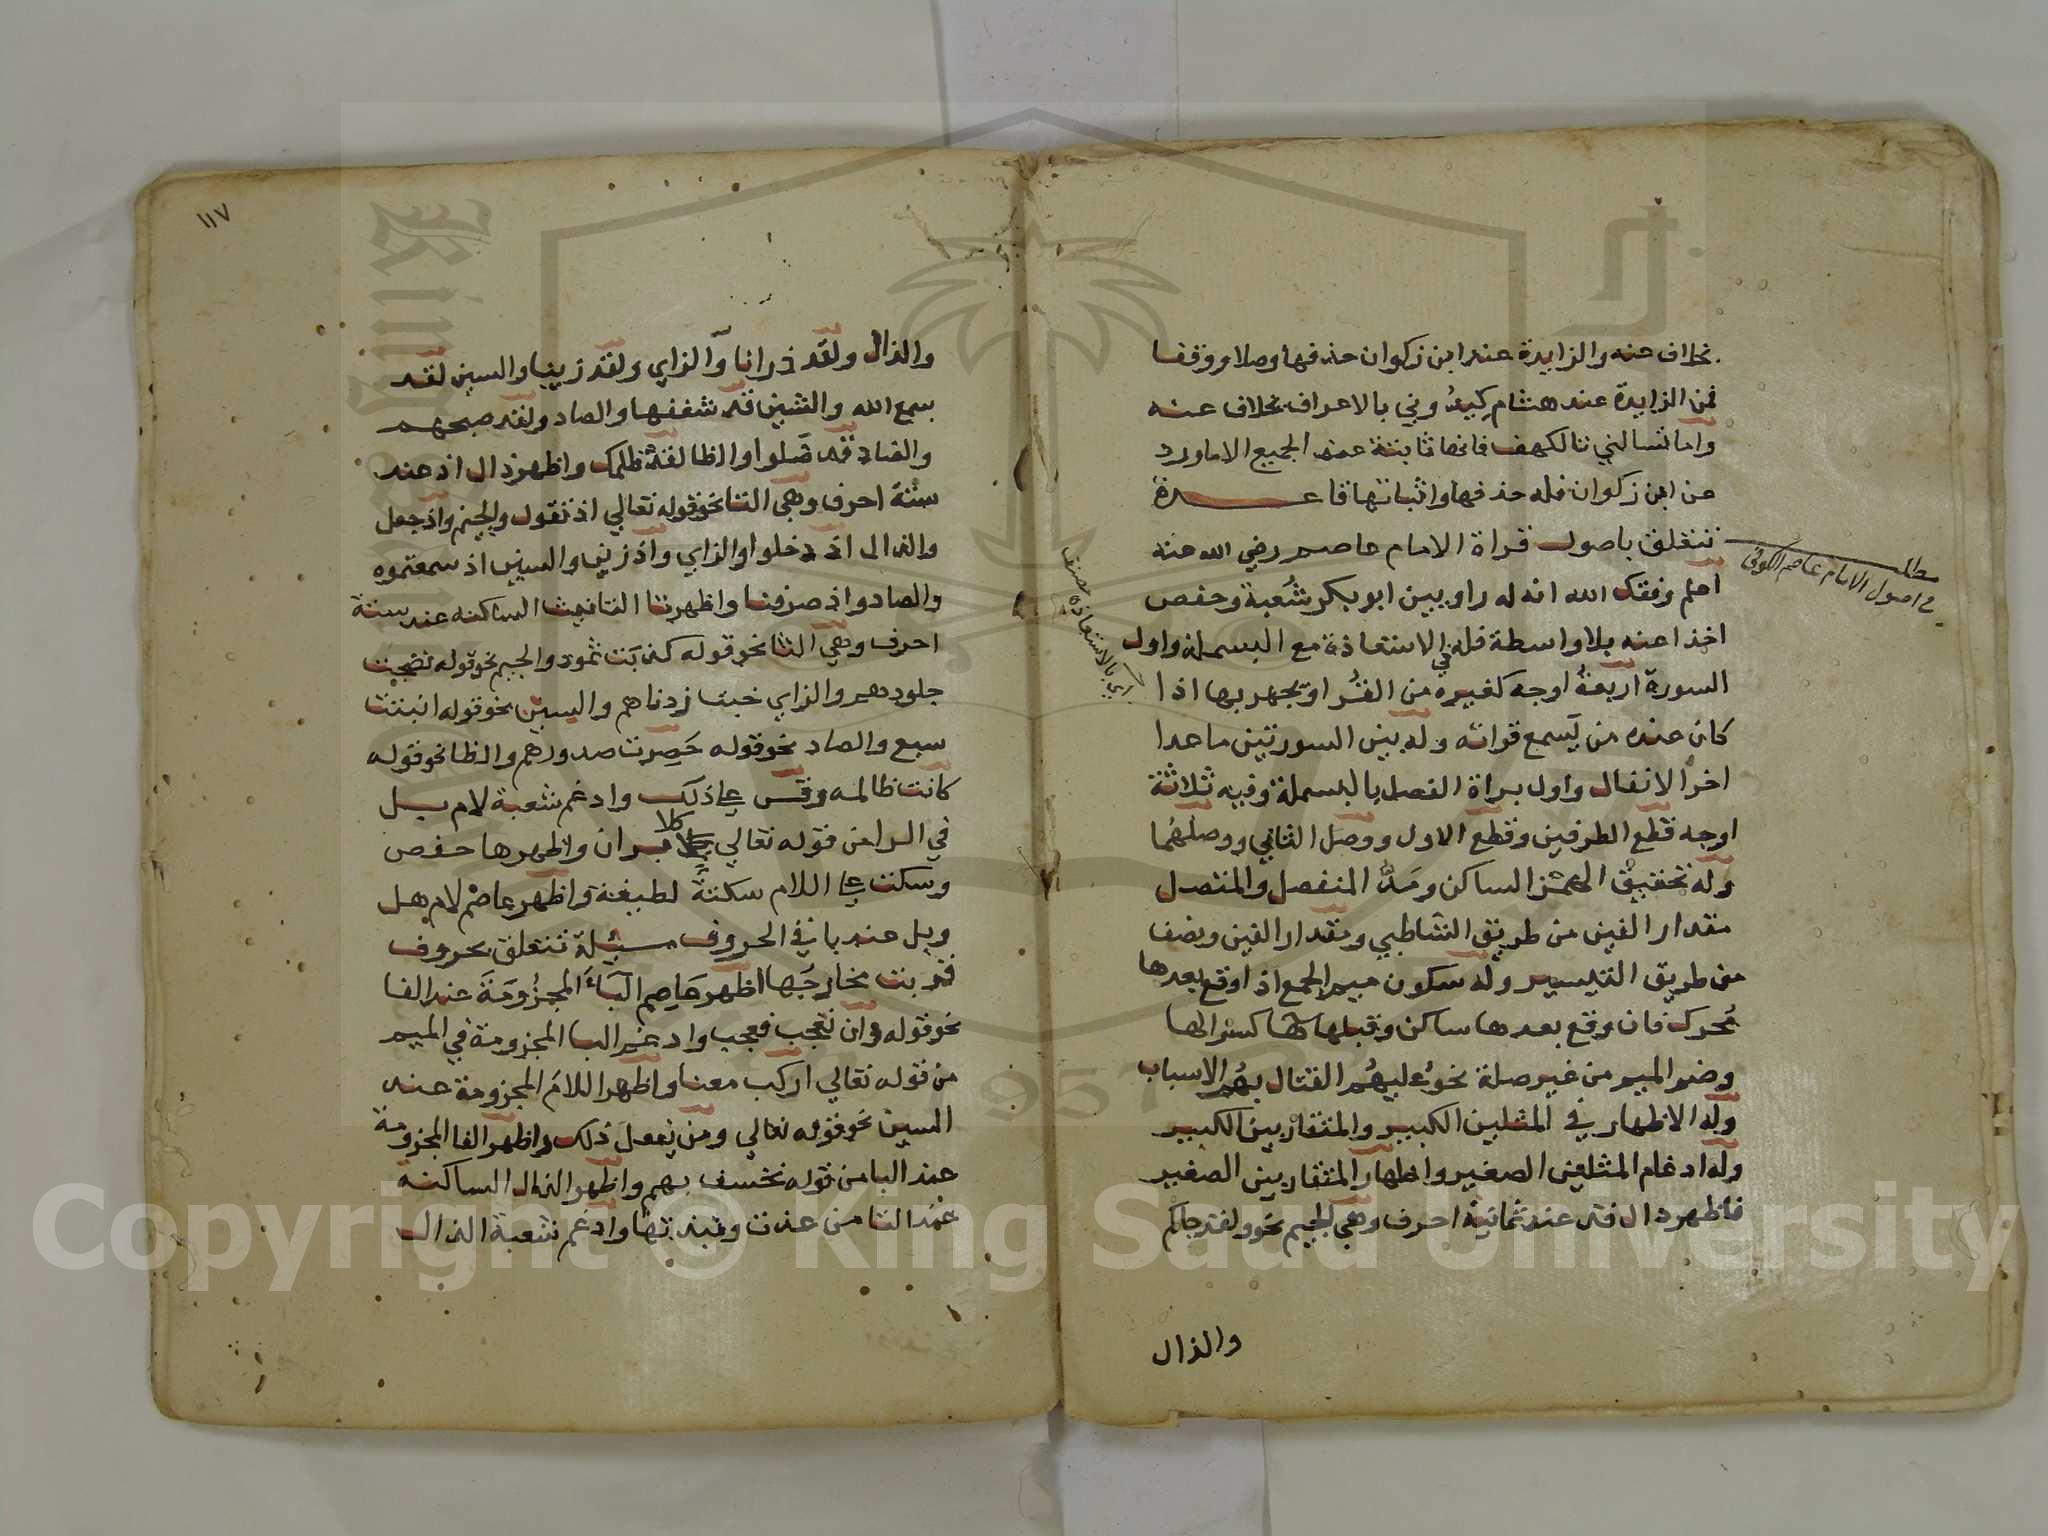 بخلاف عنه والزايدة عند ابن ذكوان حذفها وصلا ووقفا
فمن الزايدة عند هشام كيدُ وني بالاعراف بخلاف عنه
واما تسالني تالكهف فانها ثابتة عند الجميع الا ماورد
عن ابن ذكوان فله حذفها واثباتها قاعدة
تتعلق باصول قراة الامام عاصم رضي الله عنه
اعلم وفقك الله انه له راويين ابو بكر شُعبة وحفص
اخذا عنه بلا واسطة فله في الاستعاذة مع البسملة واول
السورة اربعة اوجه كغيره من القُرا ويجهر بها اذا
كان عنده من يَسمع قراته وله بين السورتين ماعدا
اخر الانفال واول براة الفصل بالبسملة وفيه ثلاثة
اوجه قطع الطرفين وقطع الاول ووصل الثاني ووصلهُما
وله تحقيق الهمز الساكن ومَدُّ المنفصل والمتصل
مقدار الفين من طريق الشاطبي ومقدار الفين ونصف
من طريق التيسير وله سكون ميم الجمع اذا وقع بعدها
مُحرك فان وقع بعدها ساكن وقبلها ها كسر الها
وضم الميم من غير صلة نحو عليهُم القتال بهُم الاسباب
وله الاظهار في المثلين الكبير والمتقاربين الكبير
وله ادغام المثلين الصغير واظهار المتقاربين الصغير
فاظهر دال قد عند ثمانية احرف وهي الجيم نحو ولقد جاكم
والذال
مطلب
في اصول الامام عاصم الكوفي
اي بالاستعاذة مصنف
١١٧
والذال ولقد ذرانا والزاي ولقد زينا والسين لقد
سمع الله والشين قد شغفها والصاد ولقد صبحهم
والضاد قد ضلوا والظا لقد ظلمك واظهر ذال اذ عند
ستة احرف وهي التا نحو قوله تعالي اذ تقول والجيم واذ جعل
والدال اذ دخلوا والزاي واذ زين والسين اذ سمعتموه
والصاد واذ صرفنا واظهر تا التانيث الساكنه عند ستة
احرف وهي الثا نحو قوله كذبت ثمود والجيم نحو قوله نضجت
جلودهم والزاي خبت زدناهم والسين نحو قوله انبتت
سبع والصاد نحو قوله حَصِرت صدورهم والظا نحو قوله
كانت ظالمه وقس علي ذلك وادغم شعبة لام بل
في الرا من قوله تعالي كلا بل ران واظهرها حفص
وسكت علي اللام سكتةً لطيفة واظهر عاصم لام هل
وبل عند باقي الحروف مسئلة تتعلق بحروف
قربت مخارجُها اظهر عَاصِم البَاءَ المجزُومَة عند الفا
نحو قوله وان تعجب فعجب وادغم البا المجزومة في الميم
من قوله تعالي اركب معنا واظهر اللام المجزومة عند
السين نحو قوله تعالي ومن يفعل ذلك واظهر الفا المجزومة
عند البا من قوله نخسف بهم واظهر الذال الساكنة
عند التا من عذت ونبذتها وادغم شعبة الذال
Copyright © King Saud University
1957